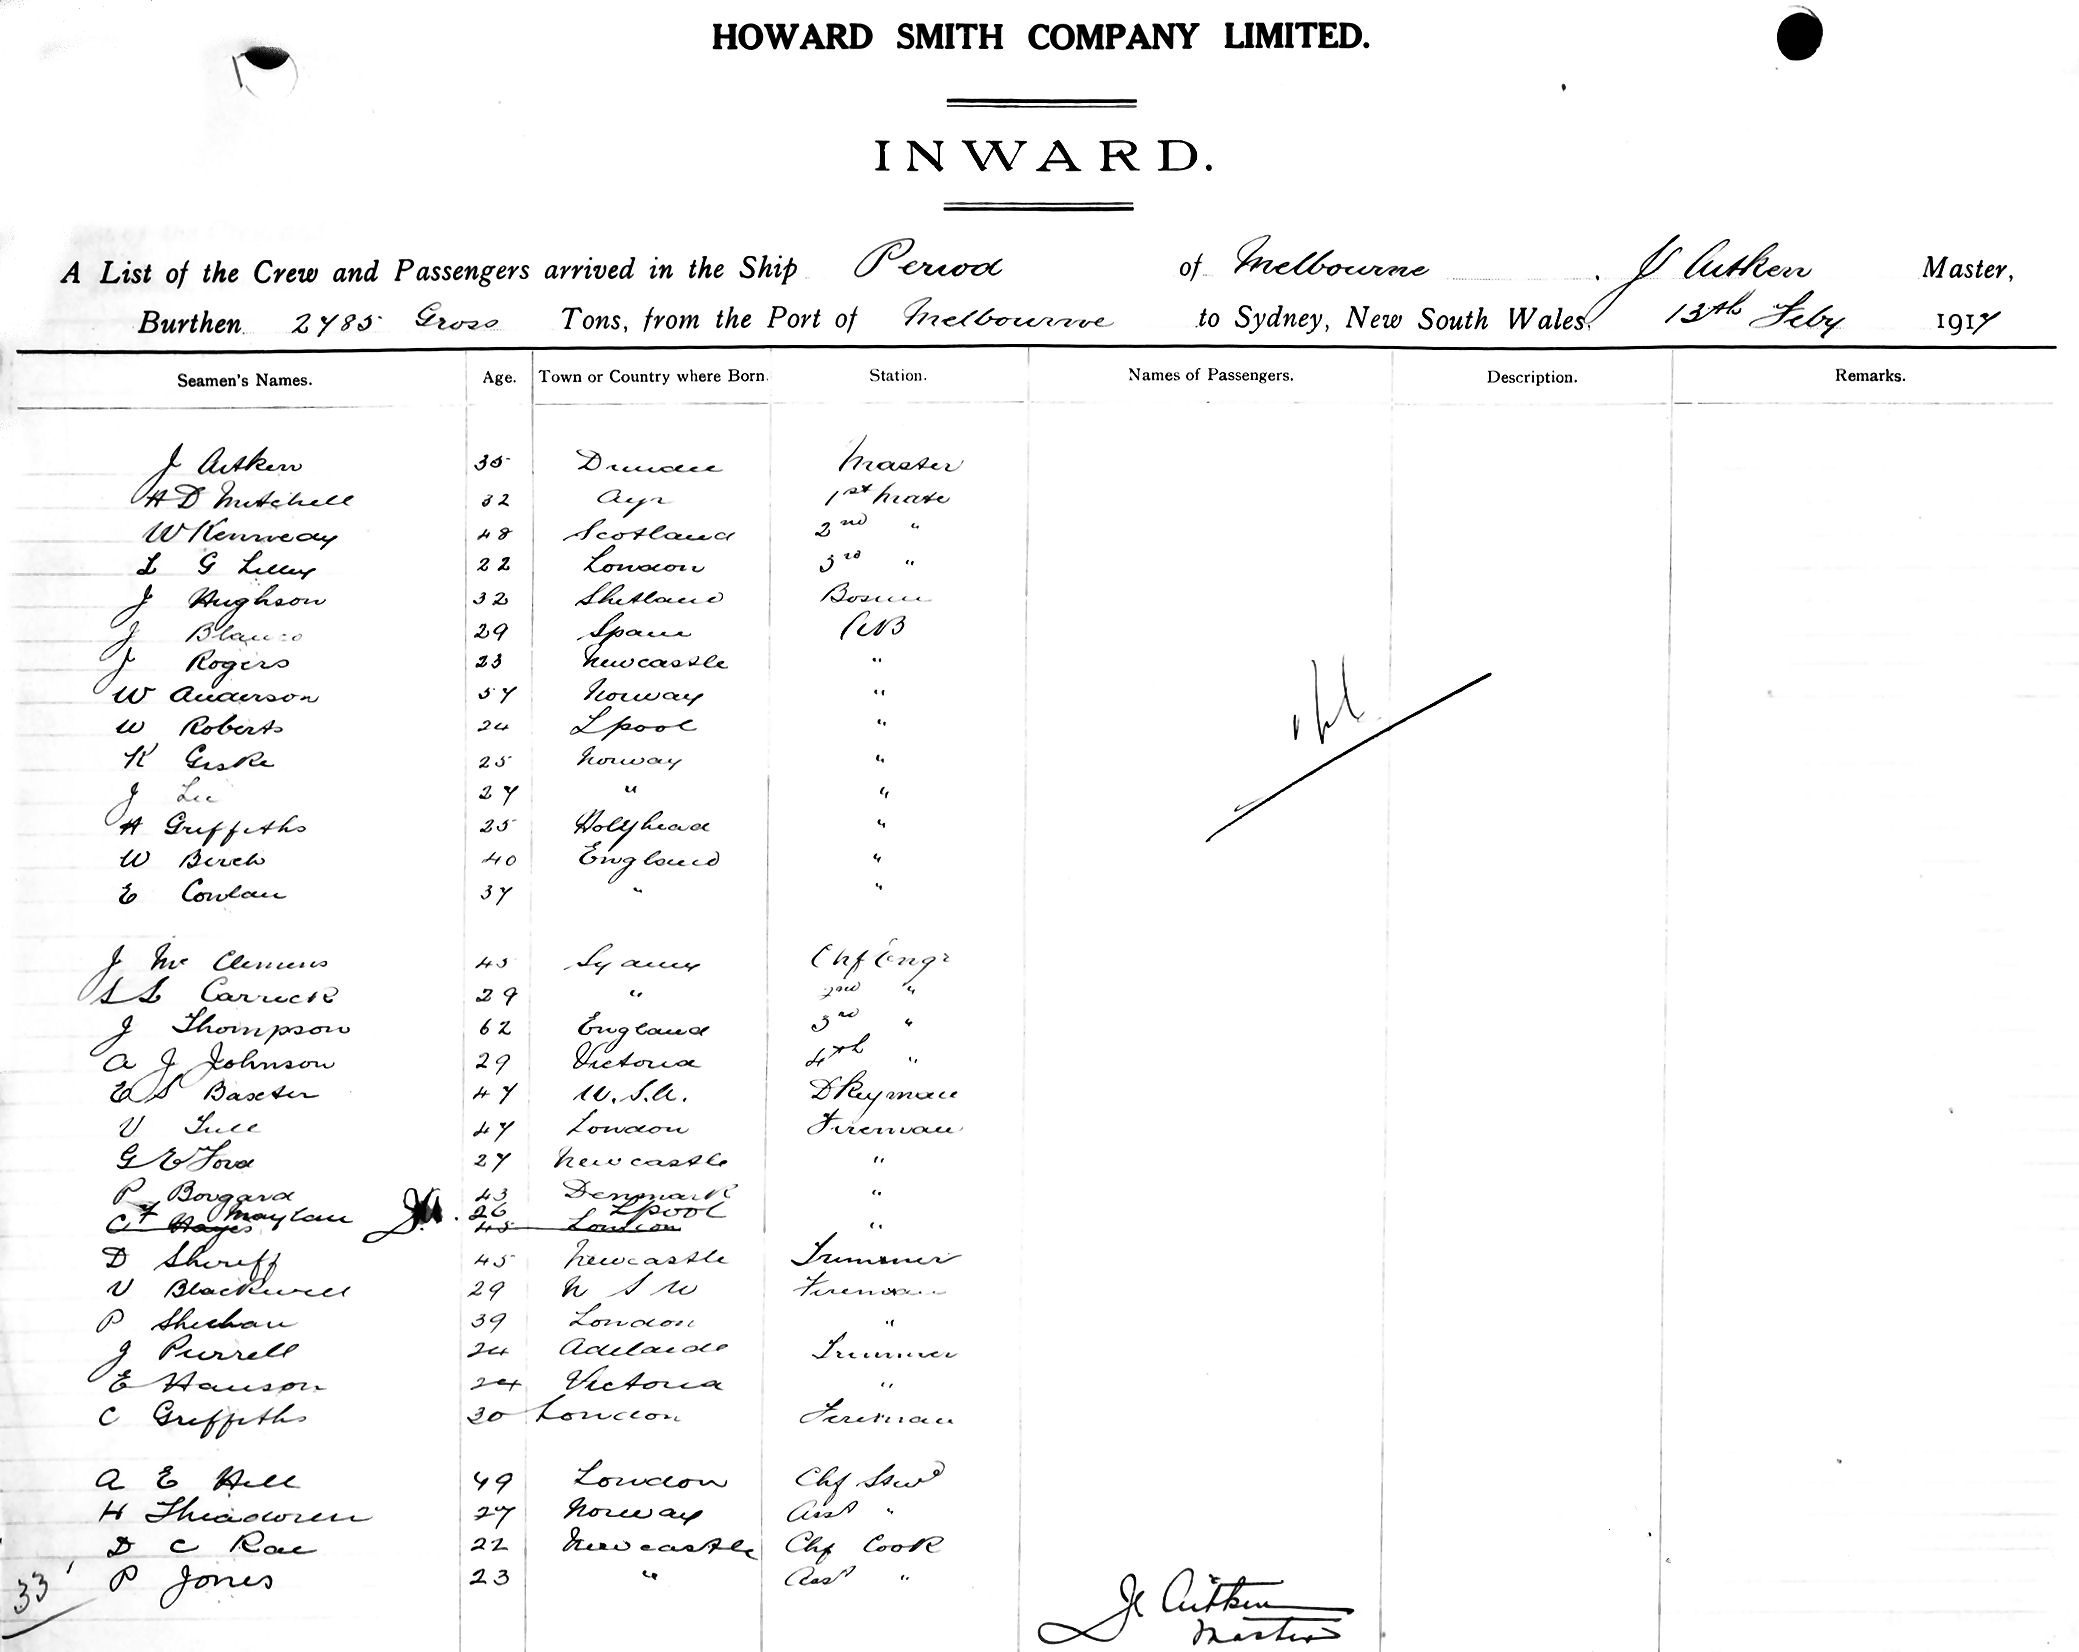 HOWARD SMITH COMPANY LIMITED.
INWARD.
A List of the Crew and Passengers arrived in the Ship Period of Melbourne J Aitken Master,
Burthen 2785 Gross Tons, from the Port of Melbourne to Sydney, New South Wales, 13th Feby 1917
Seamen's Names. Age. Town or Country where Born. Station. Names of Passengers. Description. Remarks.
J Aitken 35 Dundee Master
H D Mitchell 32 Ayr 1st Mate
W Kennedy 48 Scotland 2nd "
L G Lilley 22 London 3rd "
J Hughson 32 Shetland Bosun
J Blanco 29 Spain AB
J Rogers 23 Newcastle "
W Anderson 57 Norway "
W Roberts 24 Lpool "
K Giske 25 Norway "
J Lie 27 " "
H Griffiths 25 Holyhead "
W Birch 40 England "
E Conlan 37 " "
J Mc Clemens 45 Sydney Chf Engr
S L Carrick 29 " 2nd "
J Thompson 62 England 3rd "
A J Johnson 29 Victoria 4th "
E S Baxter 47 U.S.A. Dkeyman
V Tull 47 London Fireman
G E Ford 27 Newcastle "
P Borgard 43 Denmark "
F Maylan 26 Lpool
C Hayes 45 London "
D Sheriff 45 Newcastle Trimmer
V Blackwell 29 N S W Fireman
P Sheehan 39 London "
J Purrell 24 Adelaide Trimmer
E Hanson 24 Victoria "
C Griffiths 30 London Fireman
A E Hill 49 London Chf Stwd
H Thiadoren 27 Norway Asst "
D C Rae 22 Newcastle Chf Cook
P Jones 23 " Asst "
33
J Aitken
Master